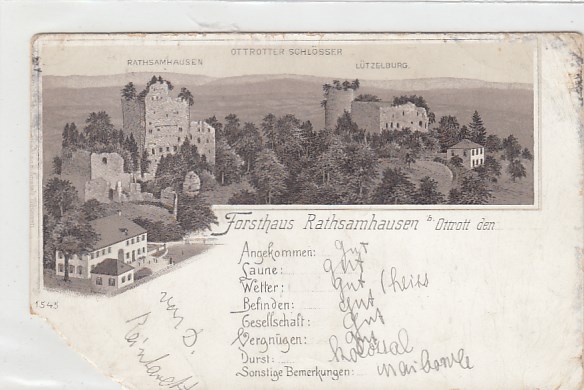 OTTROTTER SCHLÖSSER
RATHSAMHAUSEN
LÜTZELBURG.
Forsthaus Rathsamhausen b. Ottrott den
Angekommen: gut
Laune: gut
Wetter: gut / heiss
Befinden: gut
Gesellschaft: gut
Vergnügen: gut
Durst: kolossal
Sonstige Bemerkungen: Maibowle
1545
von D.